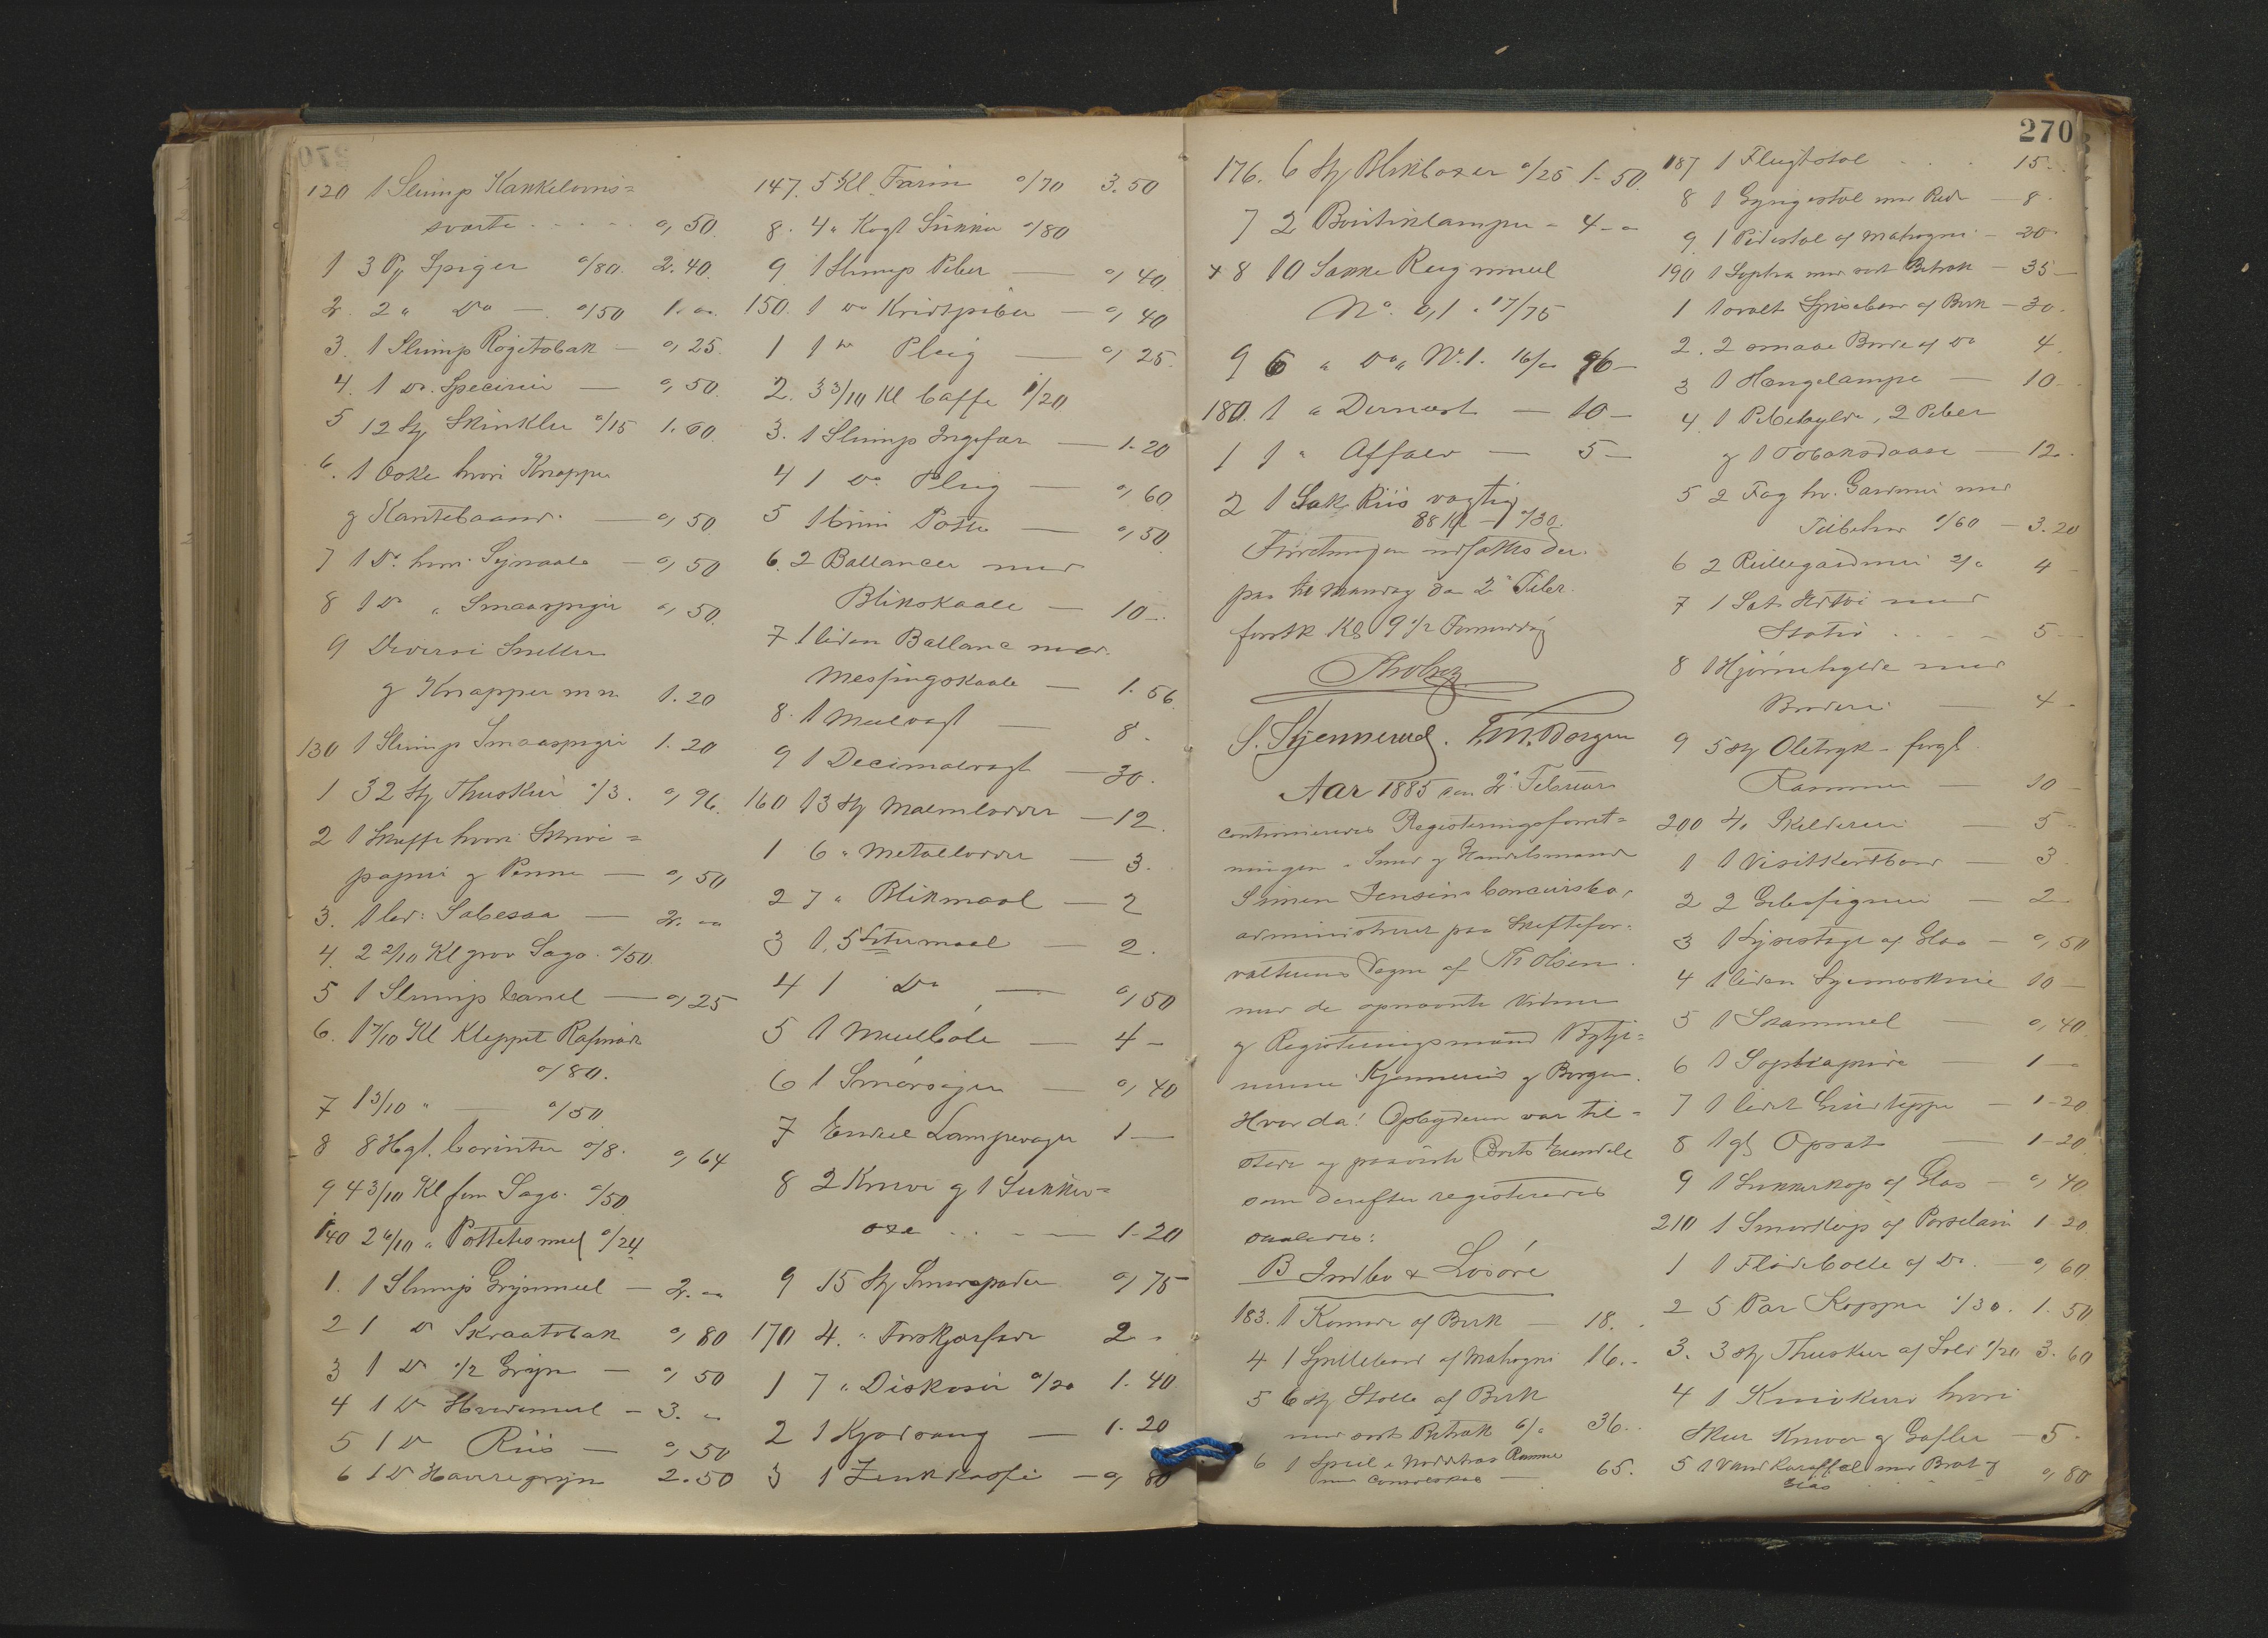 120 1 Slump Kankelovns=
svarte - - - - - 0,50
1 3 Pk Spiger 0/80. 2.40.
2. 2 " Do — 0/50 1. "
3. 1 Slump Røgetobak — 0,25.
4. 1 Do. Specerier — 0,50.
5 12 Stk Skinkler 0/15 1.60.
6. 1 Æske hvori Knapper
og Kantebaand. — 0,50
7 1 Do. hvori Synaale — 0,50
8 1 Do " Smaaspiger 0,50.
9 Diverse Sneller
og Knapper m m 1.20
130 1 Slump Smaaspiger 1.20
1 32 Stk Theskeer 0/3. 0,96.
2 1 Skuffe hvori Skrive=
papiir og Penne — 0,50
3. 1 lid: — 2. "
4. 2 2/10 Kl grov Sago. 0/50
5 1 Slump Canel — 0,25
6. 1 7/10 Kl Kleppet Rafinade
0/80.
7 1 3/10 " — 0/50
8 8 Hgt. Corinter 0/8. 0,64
9 4 3/10 Kl fin Sago. 0/50
140 2 6/10 " Pottetesmel 0/24
1. 1 Slump Grynmeel — 2. "
2 1 Do Skraatobak 0,80
3 1 Do 1/2 Gryn — 0,50
4 1 Do Hvedemeel — 3. "
5 1 Do Riis — 0,50
6 1 Do Havregryn 2.50
147. 5 Kl. Farin 0/70 3.50
8. 4 " Kogt Sukker 0/80
9 1 Slump Peber — 0,40
150. 1 Do Kridtpiber — 0,40
1 1 Do Pleig — 0,25.
2. 3 3/10 Kl Caffe 1/20
3. 1 Slump Ingefær — 1.20
4 1 Do Pleig — 0,60
5 1 Potte — 0,50
6. 2 Ballancer med
Blikskaale — 10 —
7 1 liden Ballance med
Messingskaale — 1.56
8. 1 Meelvægt — 8 -
9 1 Decimalvægt — 30.
160 13 Stk Malmlodder — 12.
1 6 " Metallodder — 3.
2 7 " Blikmaal — 2
3 1, 5 Litermaal — 2.
4 1 Do — 0,50
5 1 Meelbøle — 4 -
6 1 — 0,40
7 Endeel Lampevæger 1 —
8 2 Knive og 1 Sukker=
øxe - - - — 1.20
9 15 Stk Smørspader 0,75
170 4. " Forskjærsade 2 -
1 7 " Diskerier 0/20 1.40
2 1 Kjødsaug — 1.20
3 1 Zinkkasse — 0,80
176. 6 Stk Blikboxer 0/25 1.50.
7 2 Boutiklamper - 4 -
x 8 10 Sække Rugmeel
No. 0,1. 17/75
9 6 " Do " No. 1. 16/" 96 —
180. 1 " Dernæst — 10 —
1 1 " Affald — 5 —
2 1 Sæk Riis vægtig
88 Kl — 0/30.
Forretningen udsattes der
paa til Mandag den 2den Febr.
førstk Kl 9 1/2 Formiddag
S. Stjernerud. T. M. Borgen
Aar 1885 den 2den Februar
continueredes Registeringsforret=
ningen i Smed og Handelsmand
Simen Jensens Concursbo,
administreret paa Skiftefor=
valterens Vegne af Th Olsen
med de opnævnte Vidner
og Registeringsmænd
og Borgen.
Hvor da! Opbyderen var til=
stede og paaviste Boets Eiendele
som derefter registreredes
saaledes:
B Indbo & Løsøre
183. 1 Komode af Birk — 18. -
4 1 Spillebord af Mahogni 16. -
5 6 Stk Stolle af Birk
med sort Betræk 6/" 36. -
6 1 Speil i Nøddetræs Ramme
med Consolskab — 65.
270
187 1 Flugtstol - - - 15 -
8 1 Gyngestol med Rede — 8 -
9 1 Pidestal af Mahogni — 20 -
190 1 Sopha med sort Betræk — 35 —
1 1 ovalt Spisebord af Birk — 30.
2. 2 smaae Borde af Do 4.
3 1 Hængelampe — 10 -
4 1 Pibehylde, 2 Piber
og 1 Tobaksdaase — 12 -
5 2 Fag hv. Gardiner med
Tilbehør 1/60 — 3.20
6 2 Rullegardiner 2/" 4 -
7 1 Sæt Ildtøi med
Stativ - - - - 5 -
8 1 Hjørnehylde med
Broderi — 4 -
9 5 Stk Oletryk - forgt
Rammer — 10 -
200 4 " Skilderier — 5 -
1 1 Visitkortbord — 3
2 2 Gibsfigurer — 2 -
3 1 Lysestage af Glas — 0,50
4 1 liden Symaskine 10 —
5 1 Skammel — 0,40.
6 1 Sophapude — 1 —
7 1 lidet Gulvteppe — 1.20
8 1 gl Opsats — 1.20
9 1 Sukkerkop af Glas — 0,40
210 1 Smørkop af Porselain 1.20
1 1 Flødebolle af Do. — 0,60
2 5 Par Kopper 0/30. 1.50
3. 3 Stk Theskeer af Sølv 1/20 3.60
4 1 Knivkurv hvori
Skeer Knive og Gafler — 5 -
5 1 Vandkaraffel med Bret og
Glas - - - 0,80